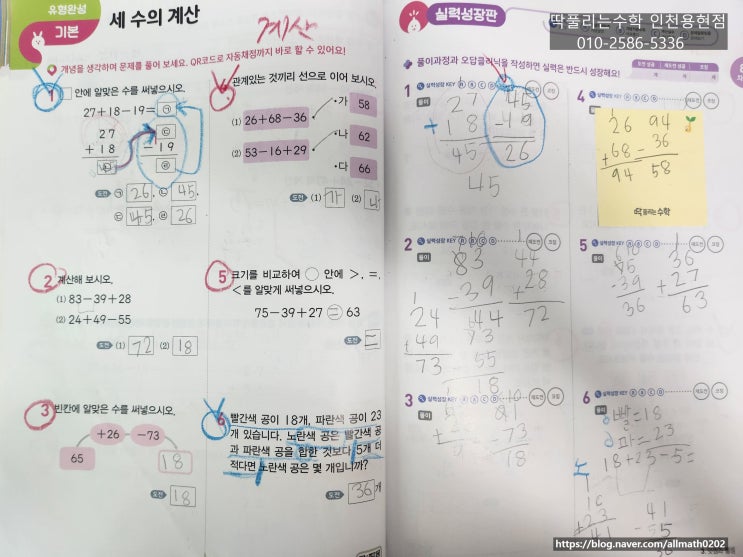 유형완성
기본
세 수의 계산
계산
개념을 생각하며 문제를 풀어 보세요. QR코드로 자동채점까지 바로 할 수 있어요!
1
안에 알맞은 수를 써넣으시오.
27+18-19=㉠
27
+ 18
㉡
㉢
- 19
㉣
도전 ㉠ 26, ㉡ 45,
㉢ 45, ㉣ 26
2 계산해 보시오.
(1) 83-39+28
(2) 24+49-55
도전 (1) 72 (2) 18
3 빈칸에 알맞은 수를 써넣으시오.
+26 -73
65 18
도전 18
관계있는 것끼리 선으로 이어 보시오.
(1) 26+68-36
(2) 53-16+29
가 58
나 62
다 66
도전 (1) 가 (2)
5 크기를 비교하여 ○ 안에 >, =,
<를 알맞게 써넣으시오.
75-39+27 = 63
도전 =
6 빨간색 공이 18개, 파란색 공이 23
개 있습니다. 노란색 공은 빨간색 공
과 파란색 공을 합한 것보다 5개 더
적다면 노란색 공은 몇 개입니까?
도전 36 개
실력성장판
딱풀리는수학 인천용현점
010-2586-5336
풀이과정과 오답클리닉을 작성하면 실력은 반드시 성장해요!
1 실력성장 KEY A B C D 재도전 코칭
풀이
27
+ 18
45
45
-19
26
45
2 실력성장 KEY A B C D 재도전 코칭
풀이
83
-39
44
44
+28
72
24
+49
73
73
- 55
18
3 실력성장 KEY A B C D 재도전 코칭
풀이
91
-73
18
4
26
+68
94
94
- 36
58
딱풀리는수학
5 실력성장 KEY A B C D 재도전 코칭
풀이
75
-39
36
36
+27
63
6 실력성장 KEY A B C D 재도전 코칭
풀이
빨=18
파=23
18+23-5=
https://blog.naver.com/allmath0202